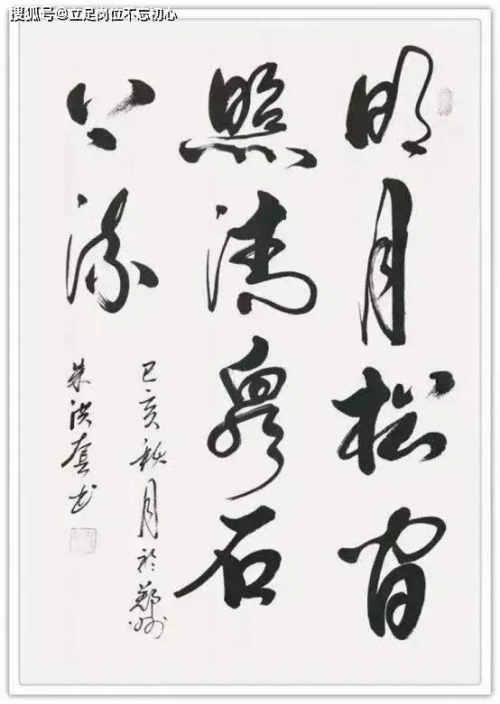 搜狐号@立足岗位不忘初心
明月松间
照清泉石
上流
己亥秋月於鄭州
朱洪书